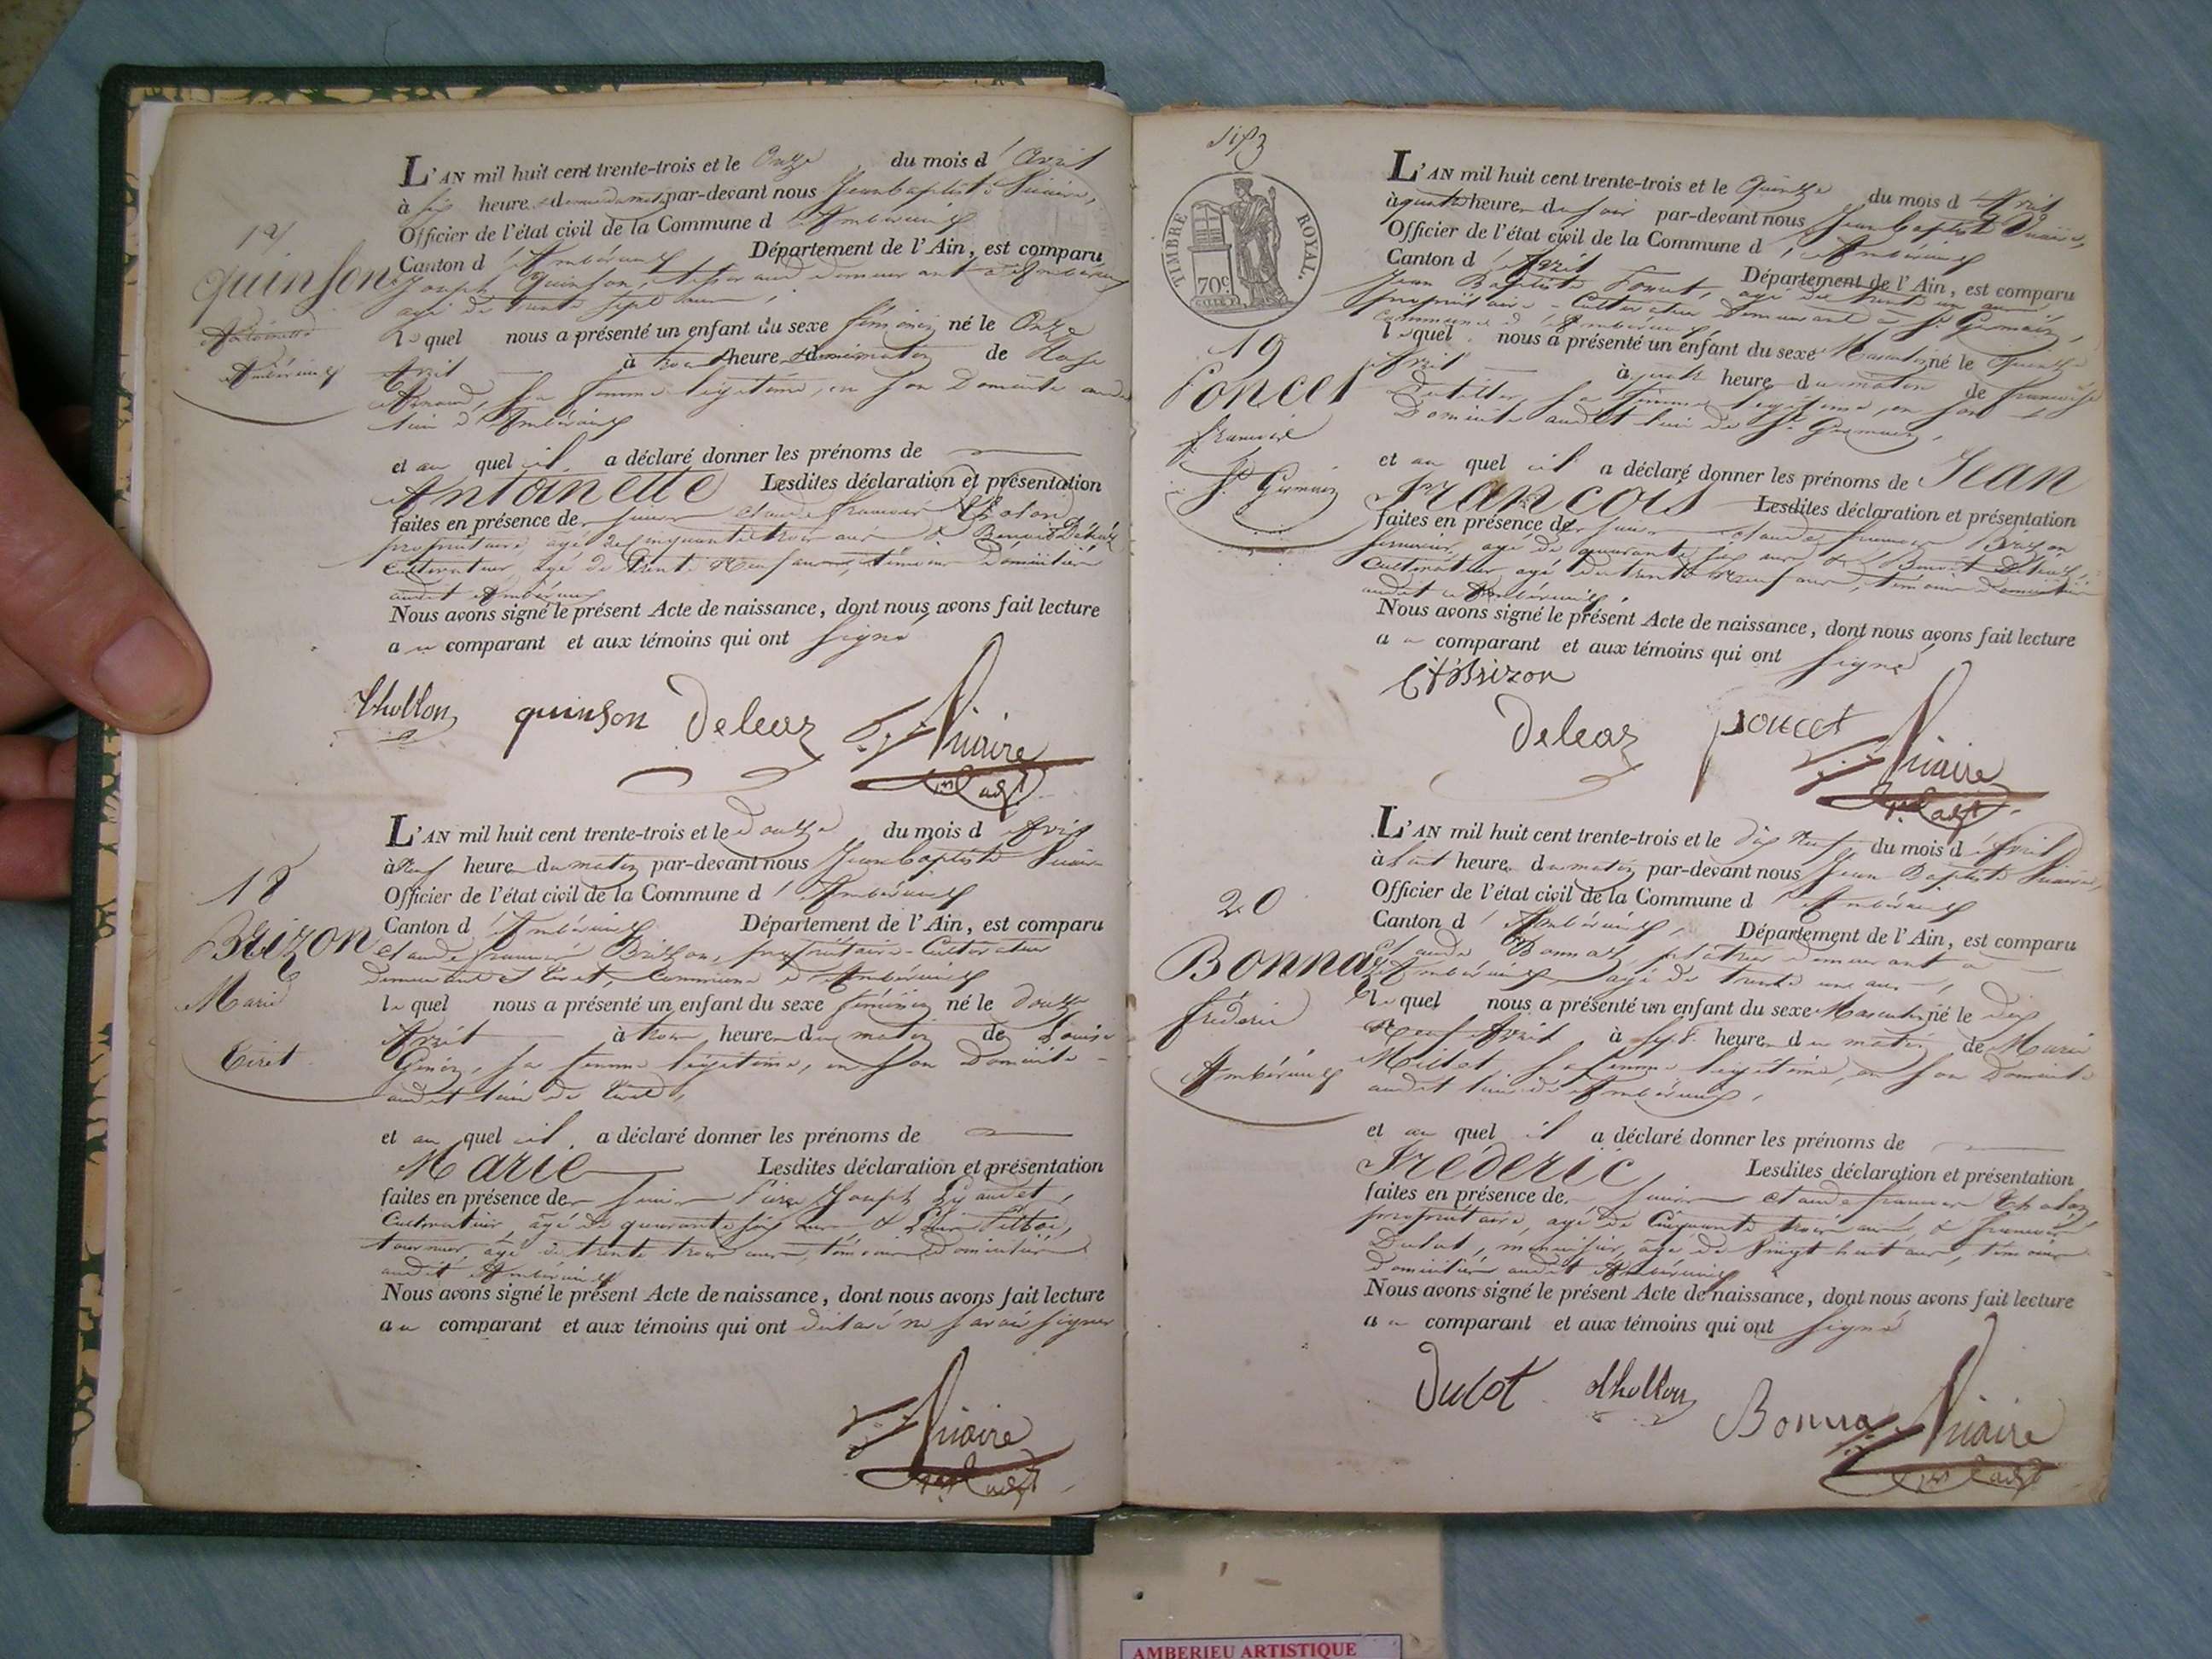 L'AN mil huit cent trente-trois et le Onze du mois d'Avril
à six heures par-devant nous Jean baptiste Vicaire,
Officier de l'état civil de la Commune d'Ambérieux
Canton d'Ambérieux Département de l'Ain, est comparu
Joseph Quinson, demeurant à Ambérieux
agé de trente sept ans,
lequel nous a présenté un enfant du sexe féminin né le Onze
Avril à trois heures du matin de Rose
sa femme légitime, en son Domicile audit
lieu d'Ambérieux
et au quel il a déclaré donner les prénoms de
Antoinette Lesdites déclaration et présentation
faites en présence de claude françois Tholon
propriétaire, agé de cinquante trois ans & Benoit Deleaz
Cultivateur, agé de trente Neuf ans, témoins Domiciliés
audit Ambérieux
Nous avons signé le présent Acte de naissance, dont nous avons fait lecture
au comparant et aux témoins qui ont signé
17
Quinson
Antoinette
Ambérieux
thollon quinson Deleaz Vicaire
L'AN mil huit cent trente-trois et le douze du mois d'Avril
à Neuf heures du matin par-devant nous Jean baptiste Vicaire
Officier de l'état civil de la Commune d'Ambérieux
Canton d'Ambérieux Département de l'Ain, est comparu
claude françois Brizon, propriétaire-Cultivateur
demeurant à Tiret, Commune d'Ambérieux
lequel nous a présenté un enfant du sexe féminin né le douze
Avril à trois heures du matin de Louise
sa femme légitime, en son Domicile
audit lieu de Tiret,
et au quel il a déclaré donner les prénoms de
Marie Lesdites déclaration et présentation
faites en présence de Pierre Joseph
Cultivateur, agé de quarante six ans &
agé de trente trois ans, témoins Domiciliés
audit Ambérieux
Nous avons signé le présent Acte de naissance, dont nous avons fait lecture
au comparant et aux témoins qui ont déclaré ne savoir signer
18
Brizon
Marie
Tiret
Vicaire
TIMBRE ROYAL.
70c.
L'AN mil huit cent trente-trois et le Quinze du mois d'Avril
à quatre heures du soir par-devant nous Jean baptiste Vicaire,
Officier de l'état civil de la Commune d'Ambérieux
Canton d Département de l'Ain, est comparu
Jean Baptiste Poncet, agé de trente un ans
propriétaire-Cultivateur Demeurant à St Germain,
commune d'Ambérieux
lequel nous a présenté un enfant du sexe Masculin né le Quinze
Avril à quatre heures du matin de françoise
sa femme légitime, en son
Domicile audit lieu de St Germain,
et au quel il a déclaré donner les prénoms de Jean
François Lesdites déclaration et présentation
faites en présence de claude françois Brizon
agé de quarante six ans & Benoit Deleaz,
Cultivateur, agé de trente Neuf ans, témoins Domiciliés
audit Ambérieux,
Nous avons signé le présent Acte de naissance, dont nous avons fait lecture
au comparant et aux témoins qui ont signé
19
Poncet
françois
St Germain
Brizon
Deleaz poncet Vicaire
L'AN mil huit cent trente-trois et le dix Neuf du mois d'Avril
à huit heures du matin par-devant nous Jean Baptiste Vicaire,
Officier de l'état civil de la Commune d'Ambérieux
Canton d'Ambérieux, Département de l'Ain, est comparu
Claude Bonnaz, demeurant à
Ambérieux, agé de trente un ans,
lequel nous a présenté un enfant du sexe Masculin né le dix
Neuf Avril à sept heures du matin de Marie
Millet sa femme légitime, en son Domicile
audit lieu d'Ambérieux,
et au quel il a déclaré donner les prénoms de
Fréderic Lesdites déclaration et présentation
faites en présence de claude françois Tholon,
propriétaire, agé de Cinquante trois ans, & françois
Dulot, menuisier, agé de vingt huit ans, témoins
domiciliés audit Ambérieux
Nous avons signé le présent Acte de naissance, dont nous avons fait lecture
au comparant et aux témoins qui ont signé
20
Bonnaz
fréderic
Ambérieux
Dulot thollon Bonnaz Vicaire
AMBERIEU ARTISTIQUE